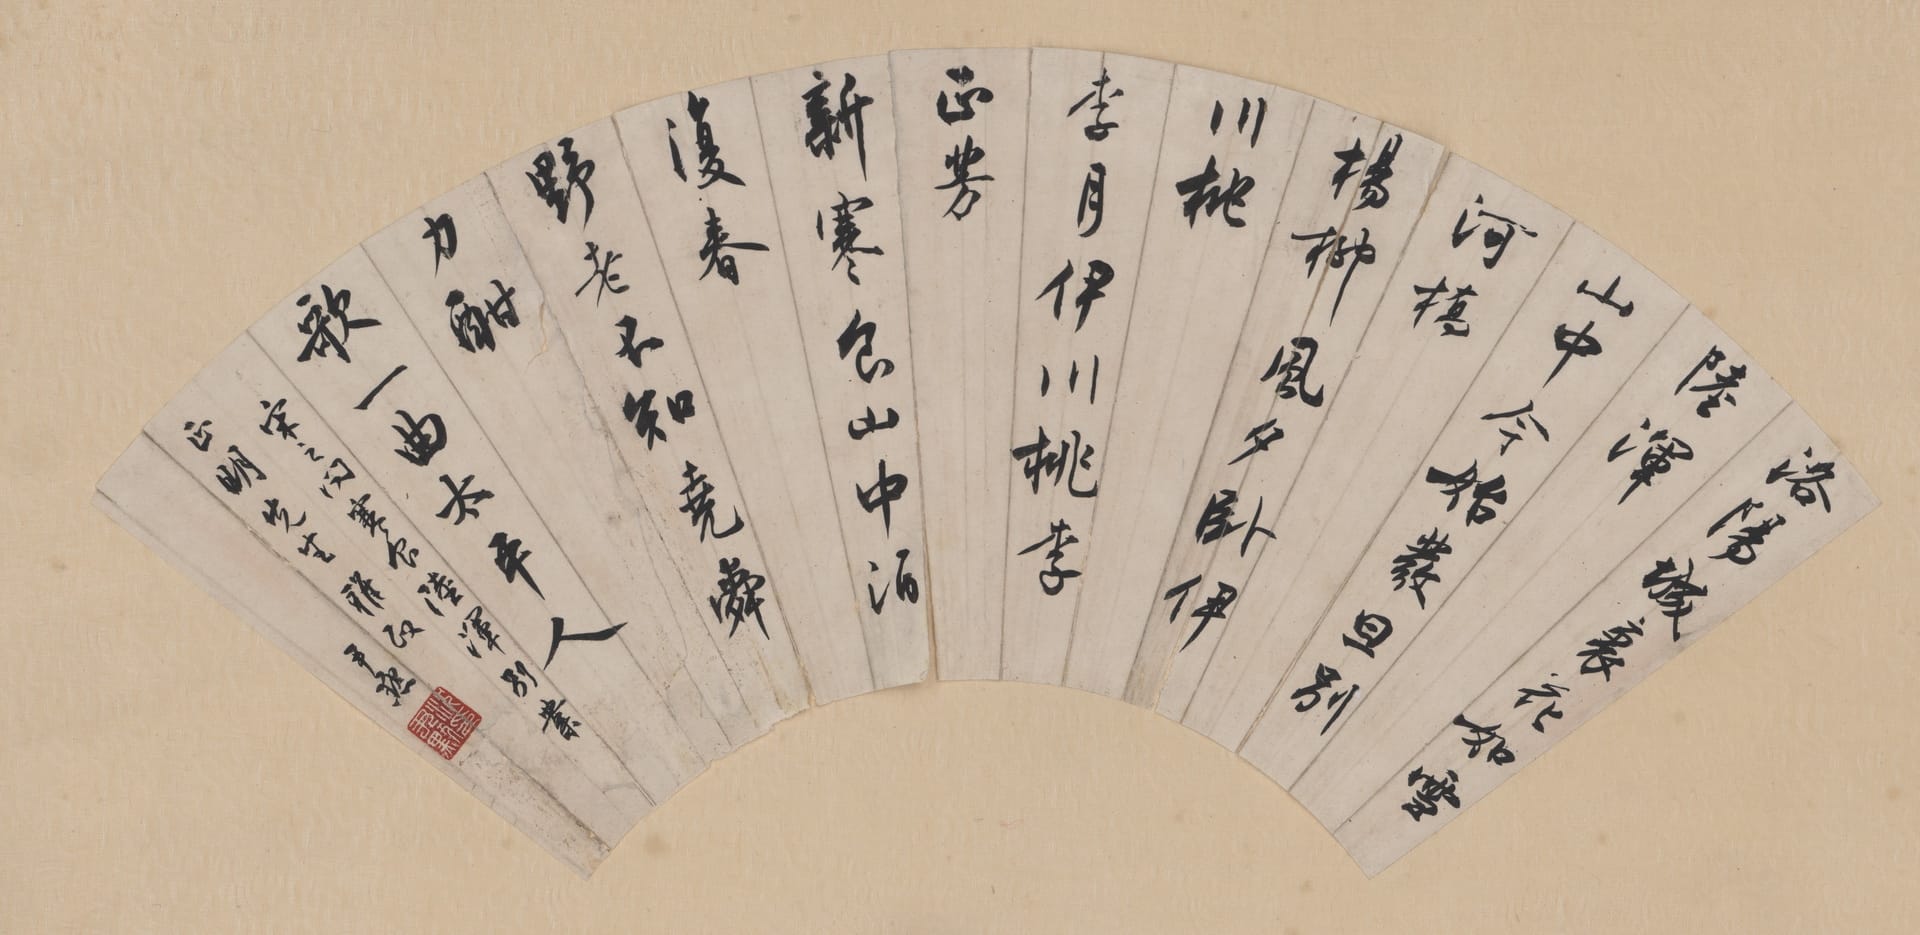 洛陽城裏花如雪
陸渾
山中今始發旦別
河橋
楊柳風夕臥伊
川桃
李月伊川桃李
正芳
新寒食山中酒
復春
野老不知堯舜
力酣
歌一曲太平人
宋之問寒食陸渾別業
正明先生雅政
尹默